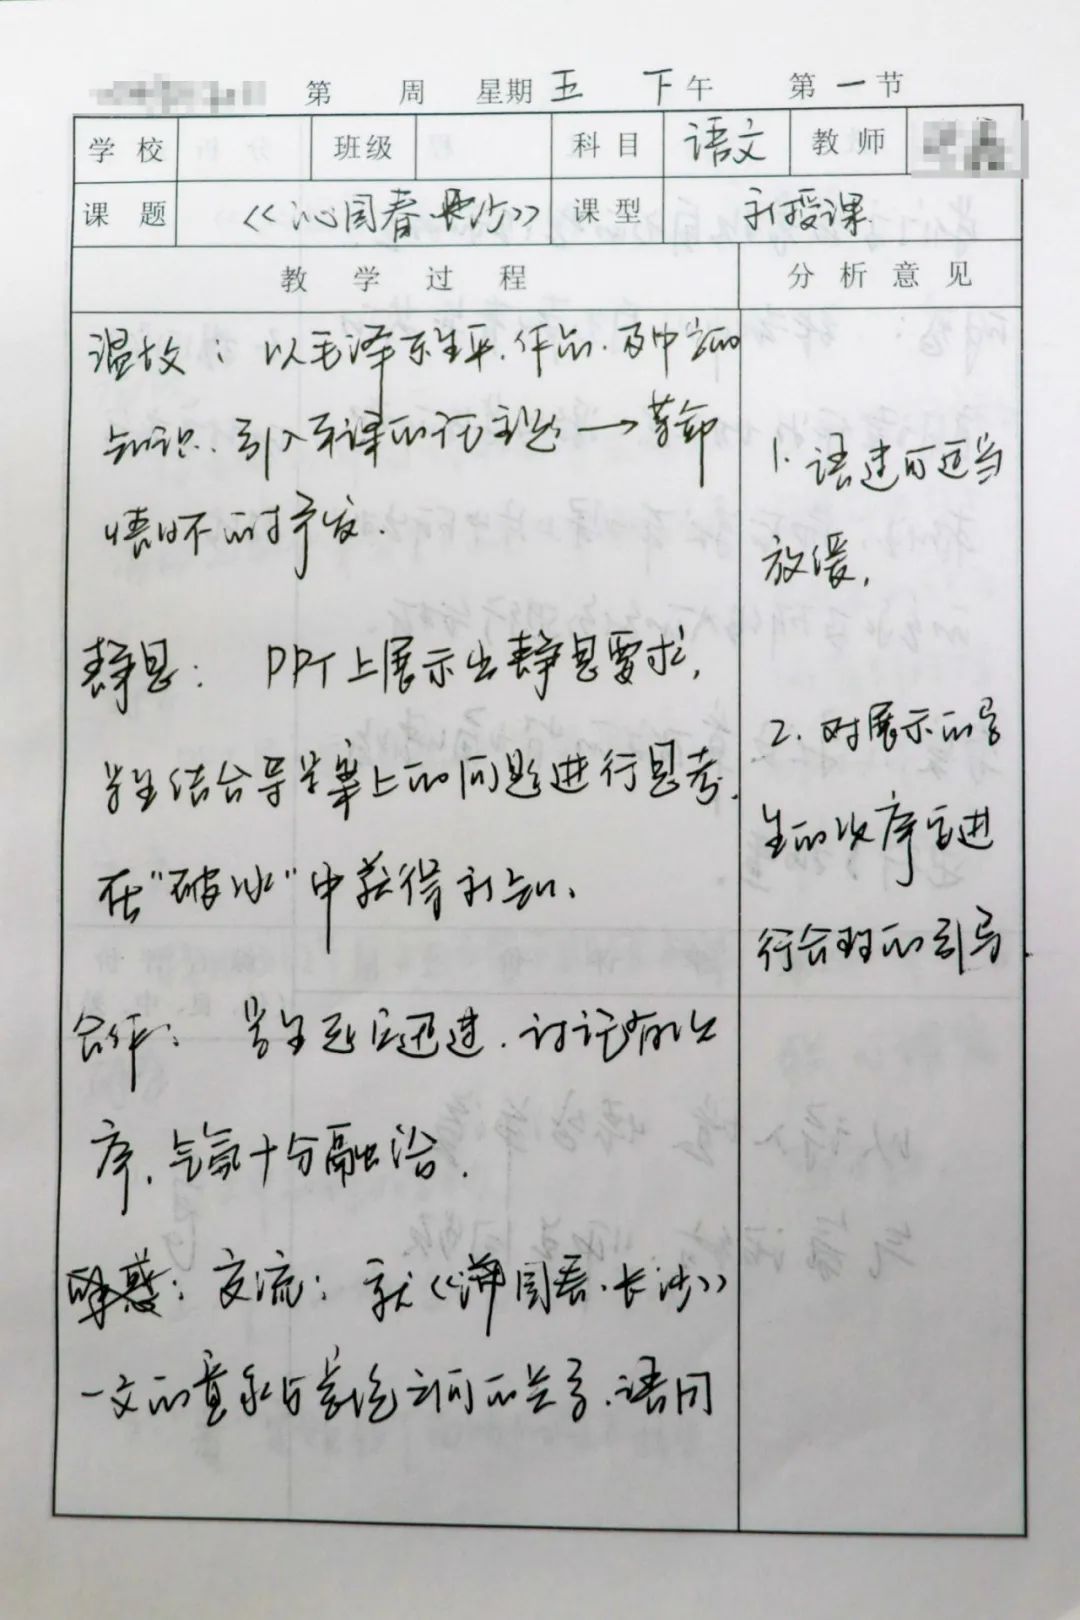 第 周 星期 五 下午 第 一 节
学校 班级 科目 语文 教师
课题 《沁园春·长沙》 课型 新授课
教学过程 分析意见
温故： 以毛泽东生平、作品、及中学的
知识、引入本课的主题→革命
情怀的抒发.
静思： PPT上展示出静思要求,
学生结合导学案上的问题进行思考,
在"破冰"中获得新知、
合作： 学生反应迅速、讨论有次
序、气氛十分融洽.
交流：就《沁园春·长沙》
一文的意象与意境之间的关系、语同
1. 语速可适当
放缓,
2. 对展示的学
生的次序可进
行合理的引导.